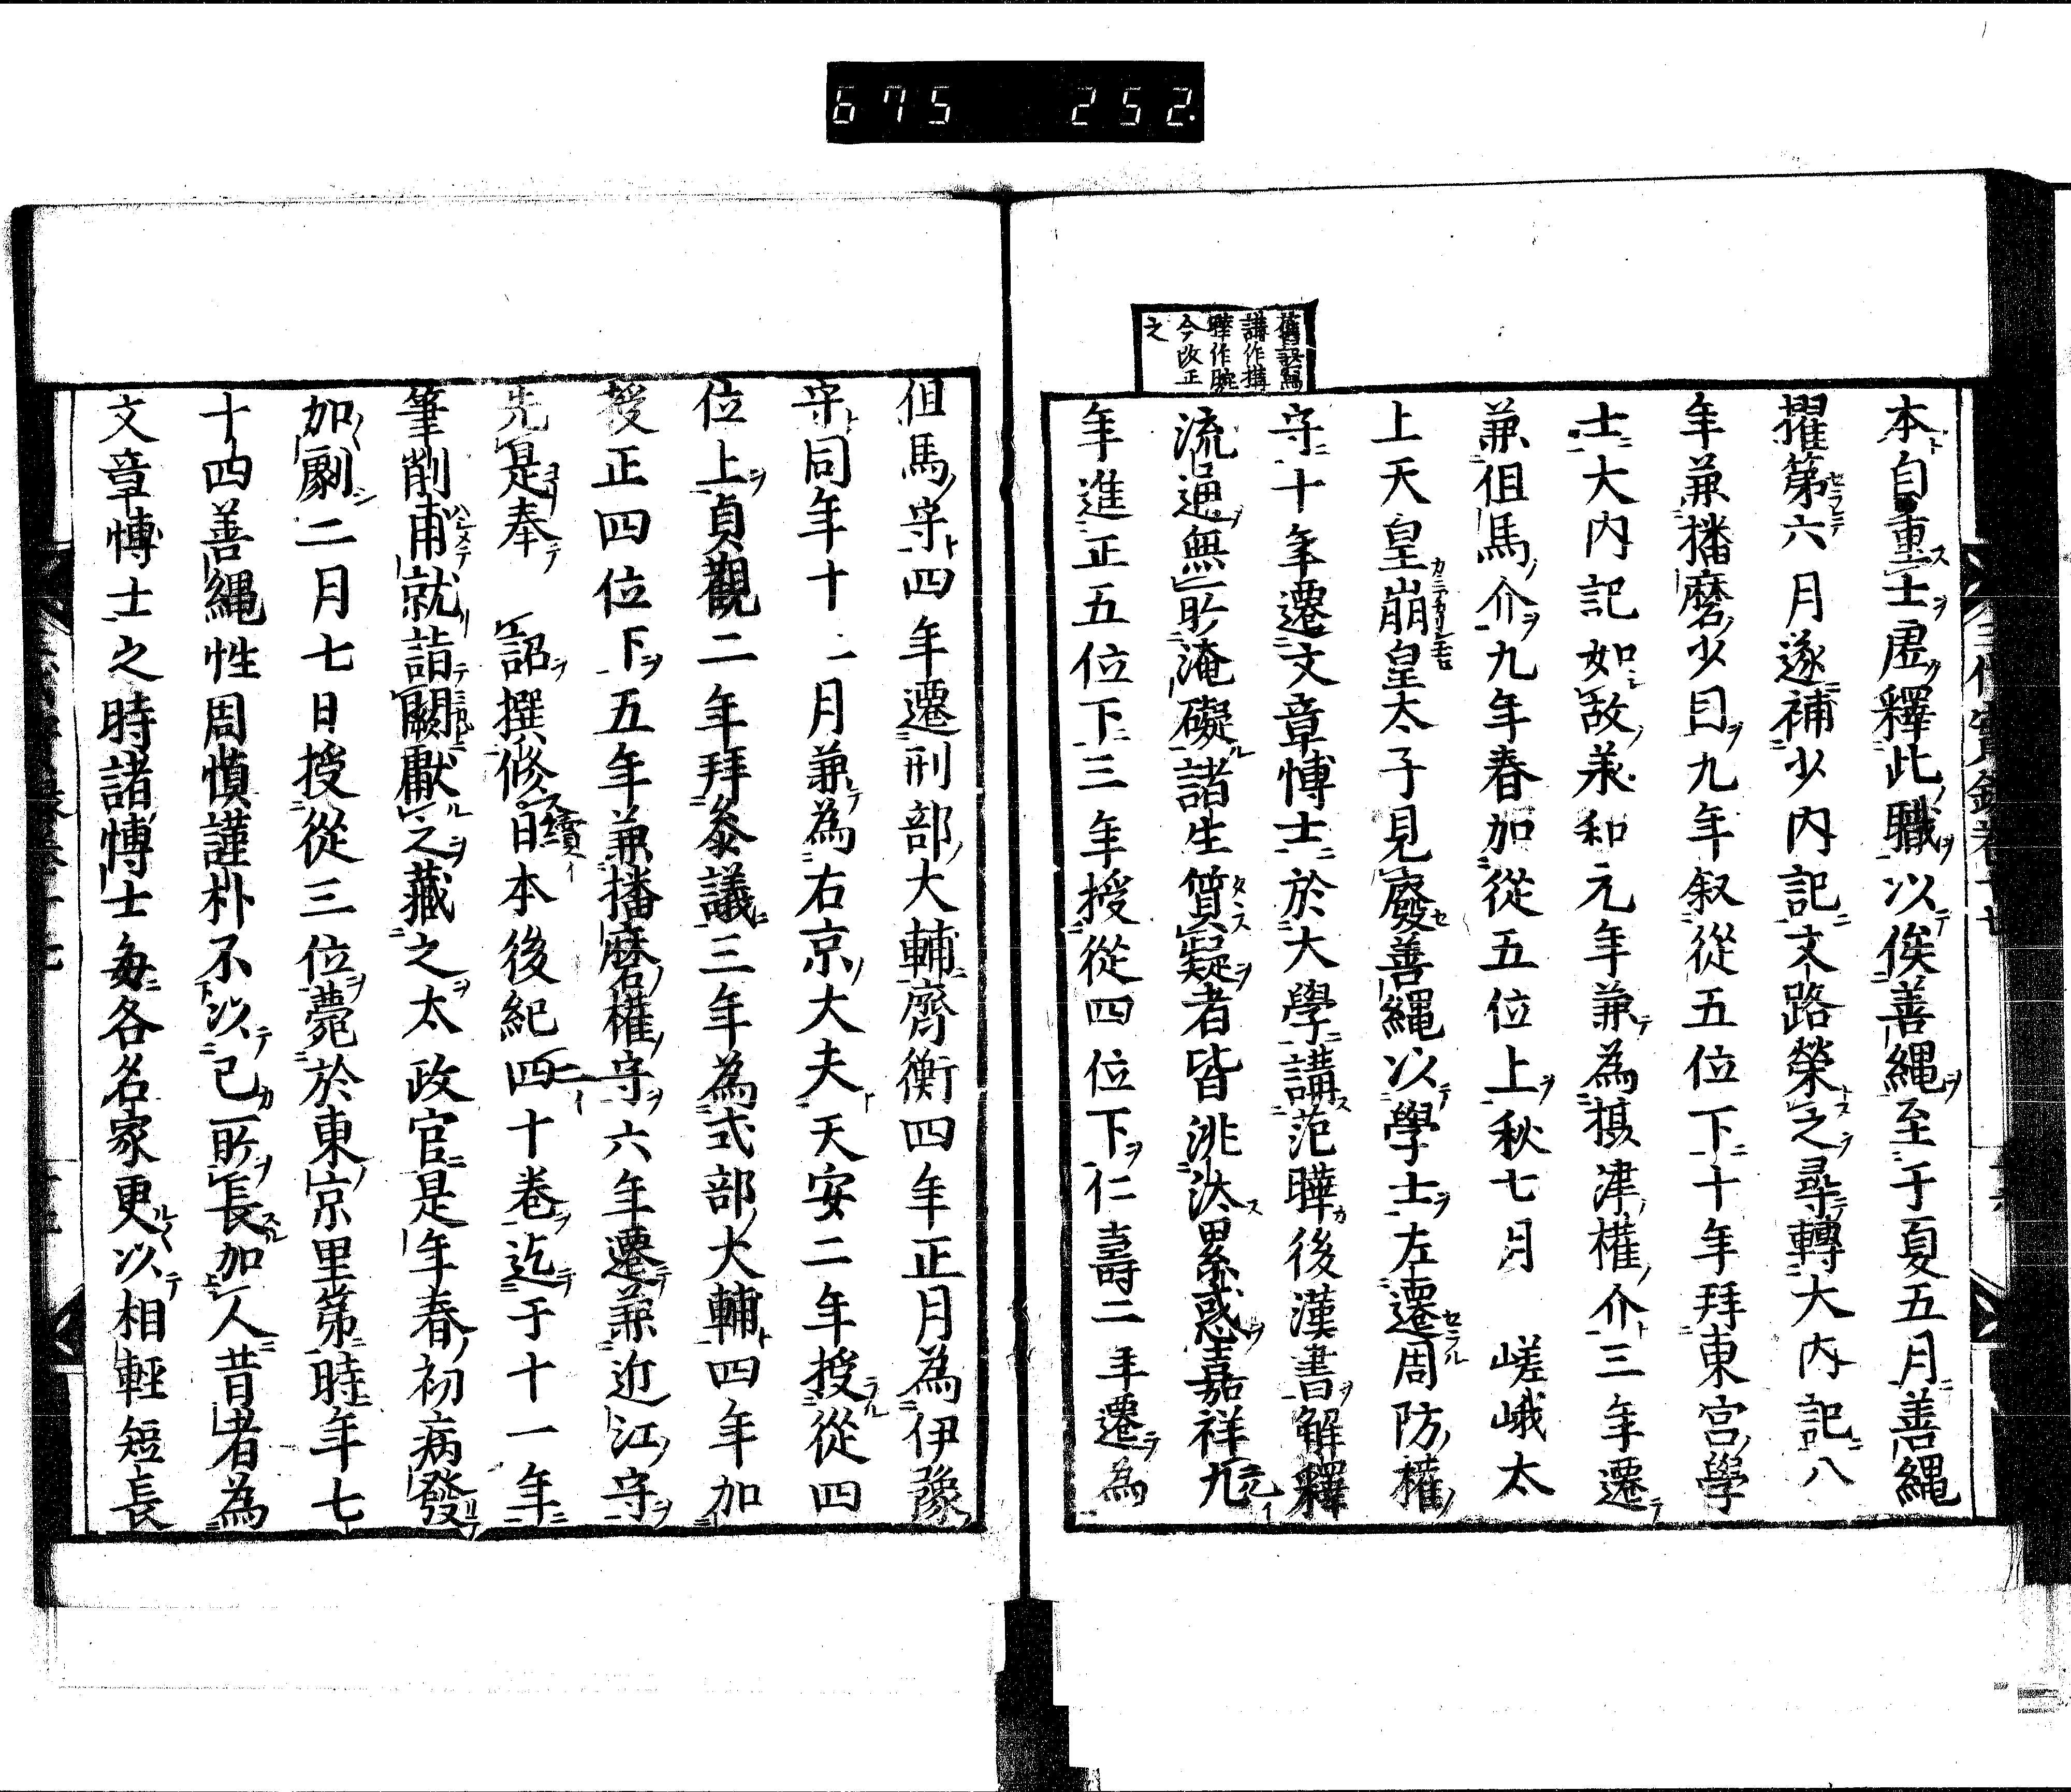 675 252.
舊誤寫
講作搆
曄作腕
今改正
之
本自重士虛釋此職以俟善繩至于夏五月善繩
擢第六月遂補少内記文路榮之尋轉大内記八
年兼播磨少目九年叙從五位下十年拜東宮學
士大内記如故承和元年兼為摂津權介三年遷
兼但馬介九年春加從五位上秋七月 嵯峨太
上天皇崩皇太子見廢善繩以學士左遷周防權
守十年遷文章博士於大學講范曄後漢書解釋
流通無所淹礙諸生質疑者皆洮汰累惑嘉祥九
年進正五位下三年授從四位下仁壽二年遷為
但馬守四年遷刑部大輔齊衡四年正月為伊豫
守同年十一月兼為右京大夫天安二年授從四
位上貞觀二年拜叅議三年為式部大輔四年加
授正四位下五年兼播磨權守六年遷兼近江守
先是奉 詔撰修日本後紀四十卷迄于十一年
筆削甫就詣闕獻之藏之太政官是年春初病發
加劇二月七日授從三位薨於東京里第時年七
十四善繩性周慎謹朴不以己所長加人昔者為
文章博士之時諸博士每各名家更以相輕短長